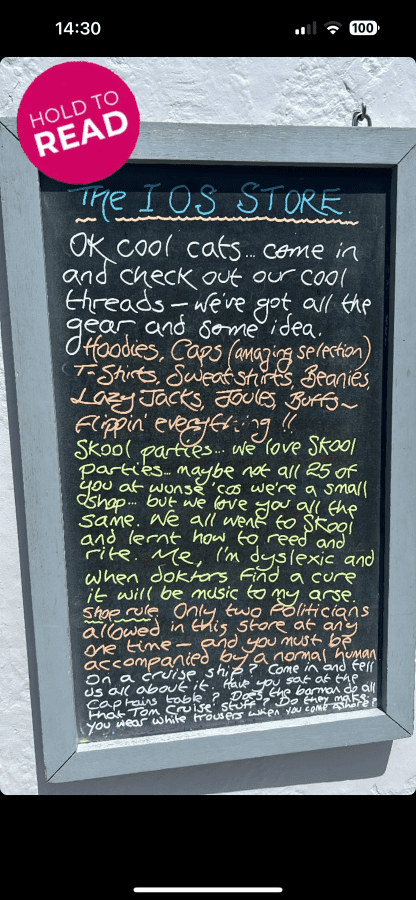 14:30
100
HOLD TO
READ
The IOS STORE.
OK cool cats... come in
and check out our cool
threads – we've got all the
gear and some idea.
Hoodies, Caps (amazing selection)
T-Shirts, Sweatshirts, Beanies,
Lazy Jacks, Joules, Buffs~
flippin' everything !!
Skool parties... we love Skool
parties... maybe not all 25 of
you at wunse 'cos we're a small
shop... but we love you all the
same. We all went to Skool
and lernt how to reed and
rite. Me, I'm dyslexic and
when doktors find a cure
it will be music to my arse.
shop rule Only two Politicians
allowed in this store at any
one time – and you must be
accompanied by a normal human
On a cruise ship? Come in and tell
us all about it. Have you sat at the
Captains table? Does the barman do all
that Tom Cruise stuff? Do they make
you wear white trousers when you come ashore?